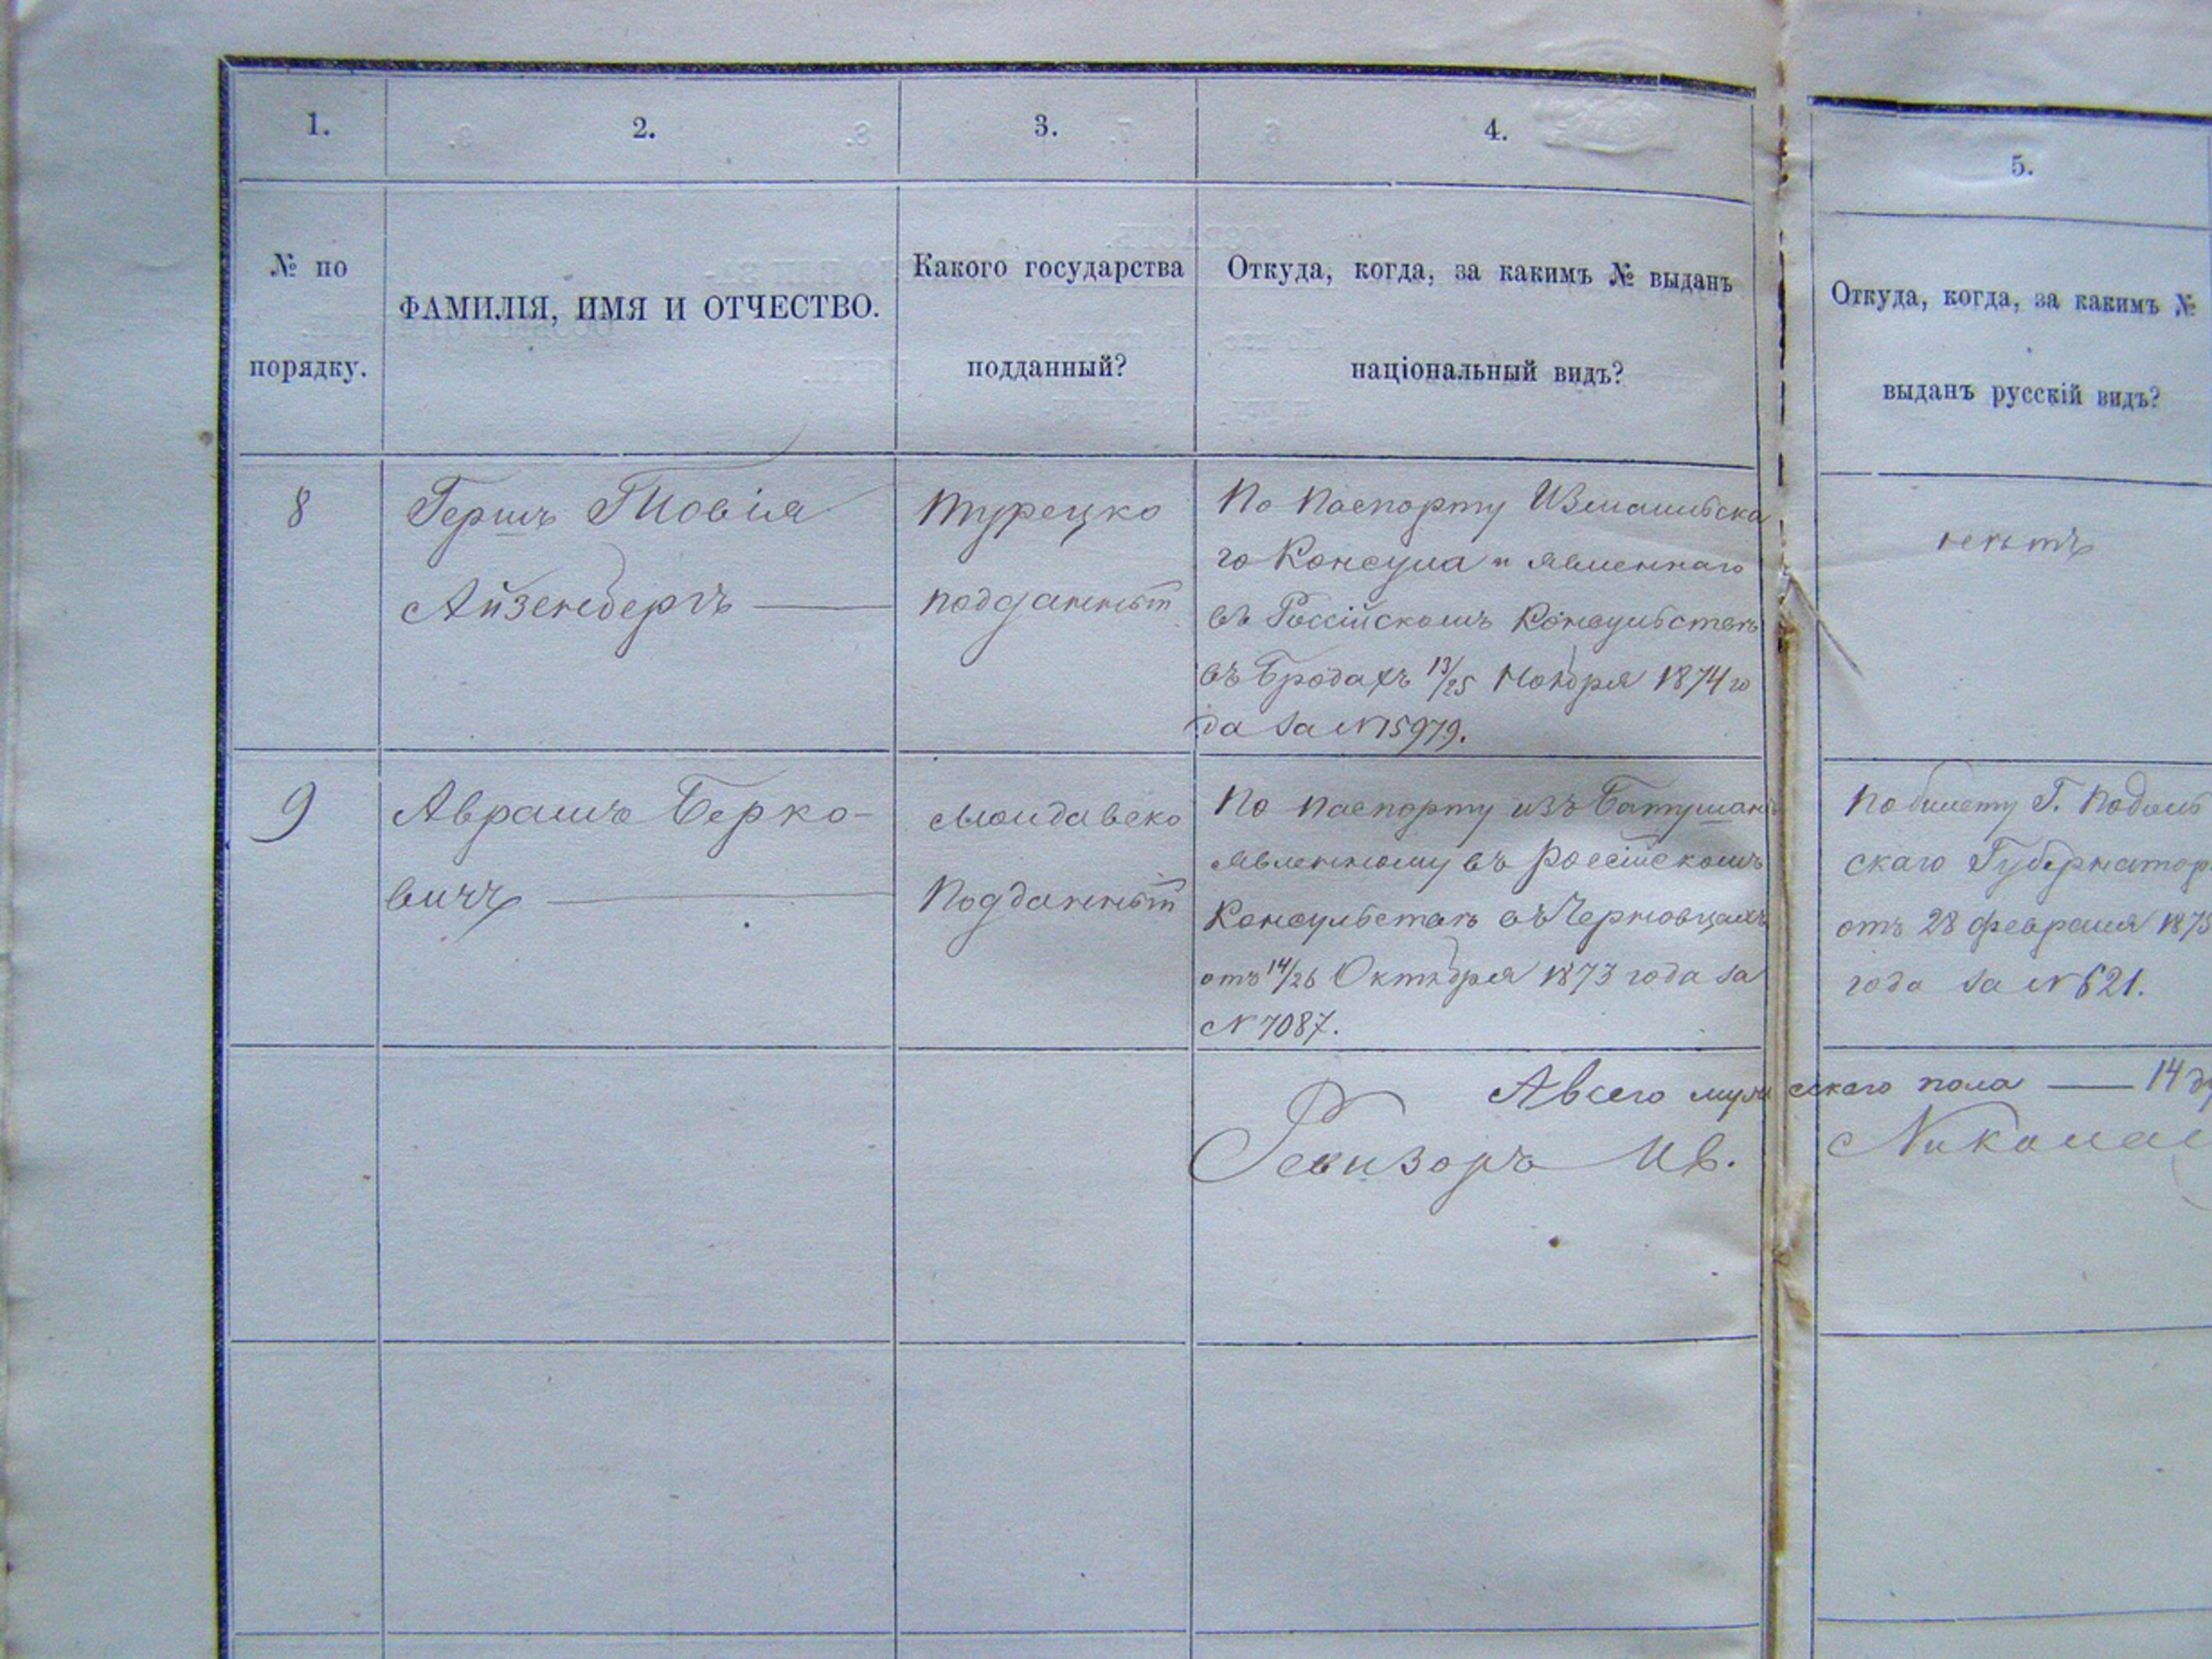 1.
2.
3.
4.
5.
№ по
порядку.
ФАМИЛІЯ, ИМЯ И ОТЧЕСТВО.
Какого государства
подданный?
Откуда, когда, за какимъ № выданъ
національный видъ?
Откуда, когда, за какимъ №
выданъ русскій видъ?
8
Гершъ Товія
Айзенбергъ
турецко
подданный
По паспорту Измаильска
го Консула и явленнаго
въ Россійскомъ Консульствѣ
въ Бродахъ 13/25 Ноября 1874 го
да за N 5979.
нѣтъ
9
Аврамъ Берко-
вичъ
Молдавско
подданный
По паспорту изъ Батушанъ
явленному въ Россійскомъ
Консульствѣ въ Черновцахъ
отъ 14/26 Октября 1873 года за
N 7087.
По билету Г. Подоль
скаго Губернатор
отъ 28 февраля 1875
года за N 621.
А всего мужескаго пола — 14 д
Ревизоръ Ив. Николае